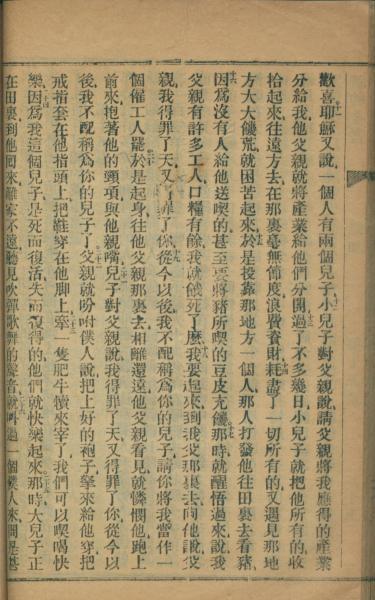 歡喜耶穌又說一個人有兩個兒子小兒子對父親說請父親將我應得的產業
分給我他父親就將產業給他們分開過了不多幾日小兒子就把他所有的收
拾起來往遠方去在那裏毫無節度浪費貲財耗盡了一切所有的又遇見那地
方大大饑荒就困苦起來於是投靠那地方一個人那人打發他往田裏去看豬
因爲沒有人給他送喫的甚至要將豬所喫的豆皮充饑那時就醒悟過來說我
父親有許多工人口糧有餘我就餓死了麼我要起來到我父那裏去向他說父
親我得罪了天又得罪了你從今以後我不配稱爲你的兒子請你將我當作一
個僱工人罷於是起身往他父親那裏去相離還遠他父親看見就憐憫他跑上
前來抱著他的頸項與他親嘴兒子對父親說我得罪了天又得罪了你從今以
後我不配稱爲你的兒子了父親就吩咐僕人說把上好的袍子拏來給他穿把
戒指套在他指頭上把鞋穿在他脚上牽一隻肥牛犢來宰了我們可以喫喝快
樂因爲我這個兒子是死而復活失而復得的他們就快樂起來那時大兒子正
在田裏到他回來離家不遠聽見吹彈歌舞的聲音就叫過一個僕人來問是甚